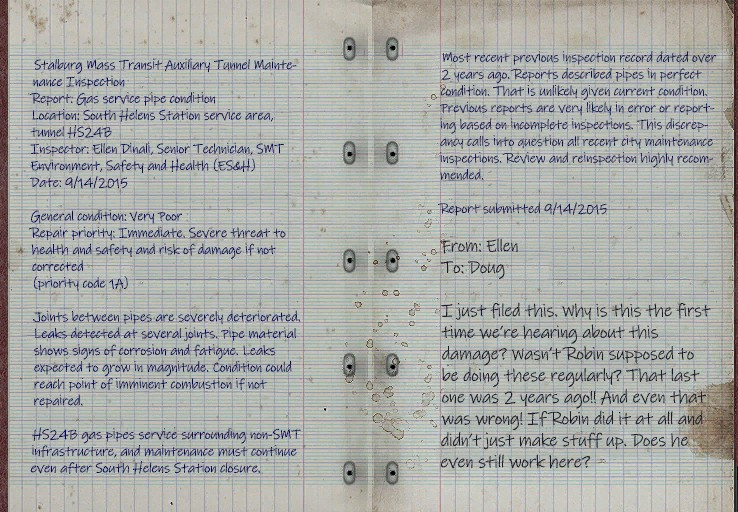 Stalburg Mass Transit Auxiliary Tunnel Mainte-
nance Inspection
Report: Gas service pipe condition
Location: South Helens Station service area,
tunnel HS24B
Inspector: Ellen Dinall, Senior Technician, SMT
Environment, Safety and Health (ES&H)
Date: 9/14/2015
General condition: Very Poor
Repair priority: Immediate. Severe threat to
health and safety and risk of damage if not
corrected
(priority code 1A)
Joints between pipes are severely deteriorated.
Leaks detected at several joints. Pipe material
shows signs of corrosion and fatigue. Leaks
expected to grow in magnitude. Condition could
reach point of imminent combustion if not
repaired.
HS24B gas pipes service surrounding non-SMT
infrastructure, and maintenance must continue
even after South Helens Station closure.
Most recent previous inspection record dated over
2 years ago. Reports described pipes in perfect
condition. That is unlikely given current condition.
Previous reports are very likely in error or report-
ing based on incomplete inspections. This discrep-
ancy calls into question all recent city maintenance
inspections. Review and reinspection highly recom-
mended.
Report submitted 9/14/2015
From: Ellen
To: Doug
I just filed this. Why is this the first
time we're hearing about this
damage? Wasn't Robin supposed to
be doing these regularly? That last
one was 2 years ago!! And even that
was wrong! If Robin did it at all and
didn't just make stuff up. Does he
even still work here?